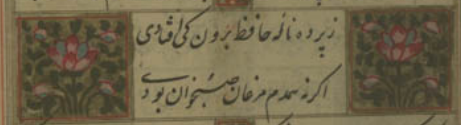 ز پرده ناله حافظ برون کی افتادی
اگر نه همدم مرغان صبح خوان بودی